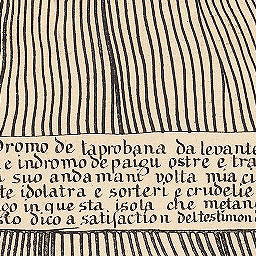 dromo de taprobana da levante
e indromo de paigu ostre e tra
suo andamanĩ volta mia ci
te idolatra e sorteri e crudelie
go in que sta isola che metano
sto dico a satisfaction del testimon